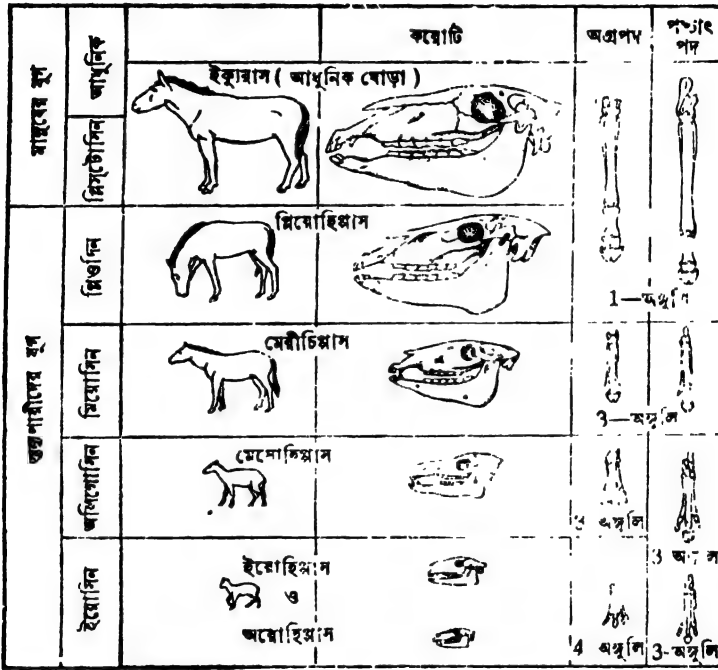 করোটি
অগ্রপদ
পশ্চাৎ
পদ
মানুষের যুগ
আধুনিক
ইকুয়াস ( আধুনিক ঘোড়া )
প্লিস্টোসিন
স্তন্যপায়ীদের যুগ
প্লিওসিন
প্লিয়োহিপ্পাস
1—অঙ্গুলি
মিয়োসিন
মেরীচিপ্পাস
3—অঙ্গুলি
অলিগোসিন
মেসোহিপ্পাস
অঙ্গুলি
3
ইয়োসিন
ইয়োহিপ্পাস
ও
অরোহিপ্পাস
4 অঙ্গুলি
3-অঙ্গুলি